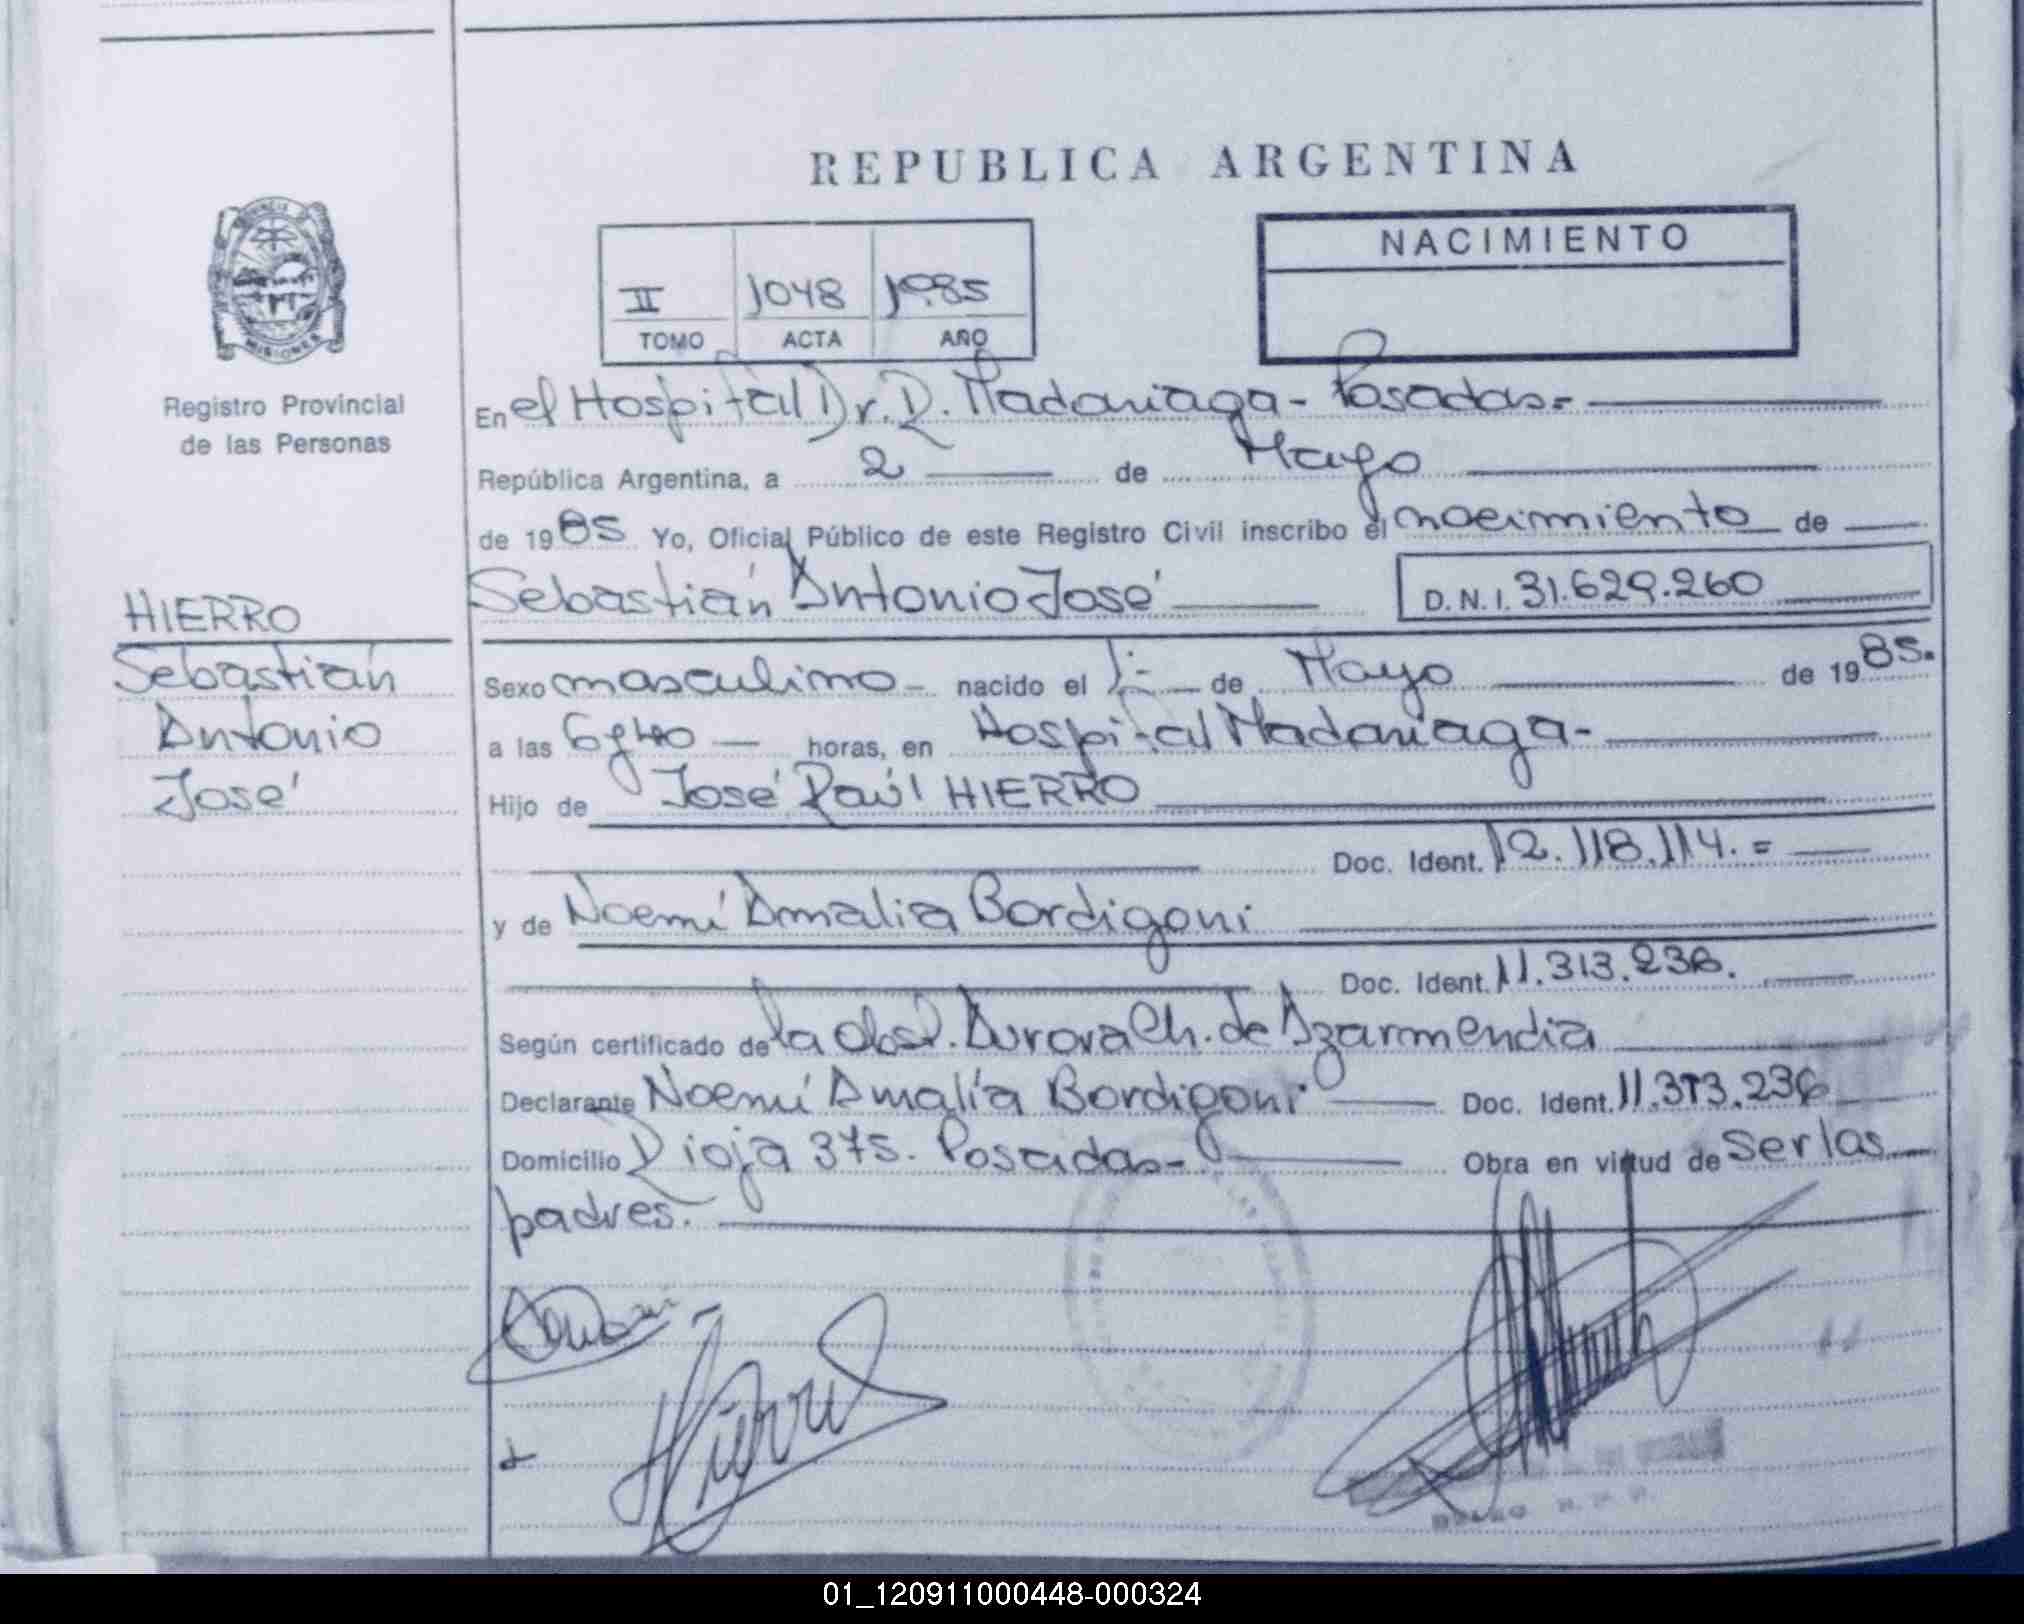 REPUBLICA ARGENTINA
PROVINCIA DE
MISIONES
Registro Provincial
de las Personas
II 1048 1985
TOMO ACTA AÑO
NACIMIENTO
En el Hospital Dr. R. Madariaga - Posadas.-
República Argentina, a 2 de Mayo
de 1985 Yo, Oficial Público de este Registro Civil inscribo el nacimiento de
Sebastián Antonio José D.N.I. 31.629.260
HIERRO
Sebastián
Antonio
José
Sexo masculino - nacido el 1º de Mayo de 1985.
a las 6 y 40 horas, en Hospital Madariaga -
Hijo de José Raúl HIERRO
Doc. Ident. 12.118.114. =
y de Noemí Amalia Bordigoni
Doc. Ident. 11.313.236.
Según certificado de la obst. Aurora Ch. de Azarmendia
Declarante Noemí Amalia Bordigoni Doc. Ident. 11.373.236
Domicilio Rioja 375. Posadas - Obra en virtud de ser las
padres.
Hierro
01_120911000448-000324